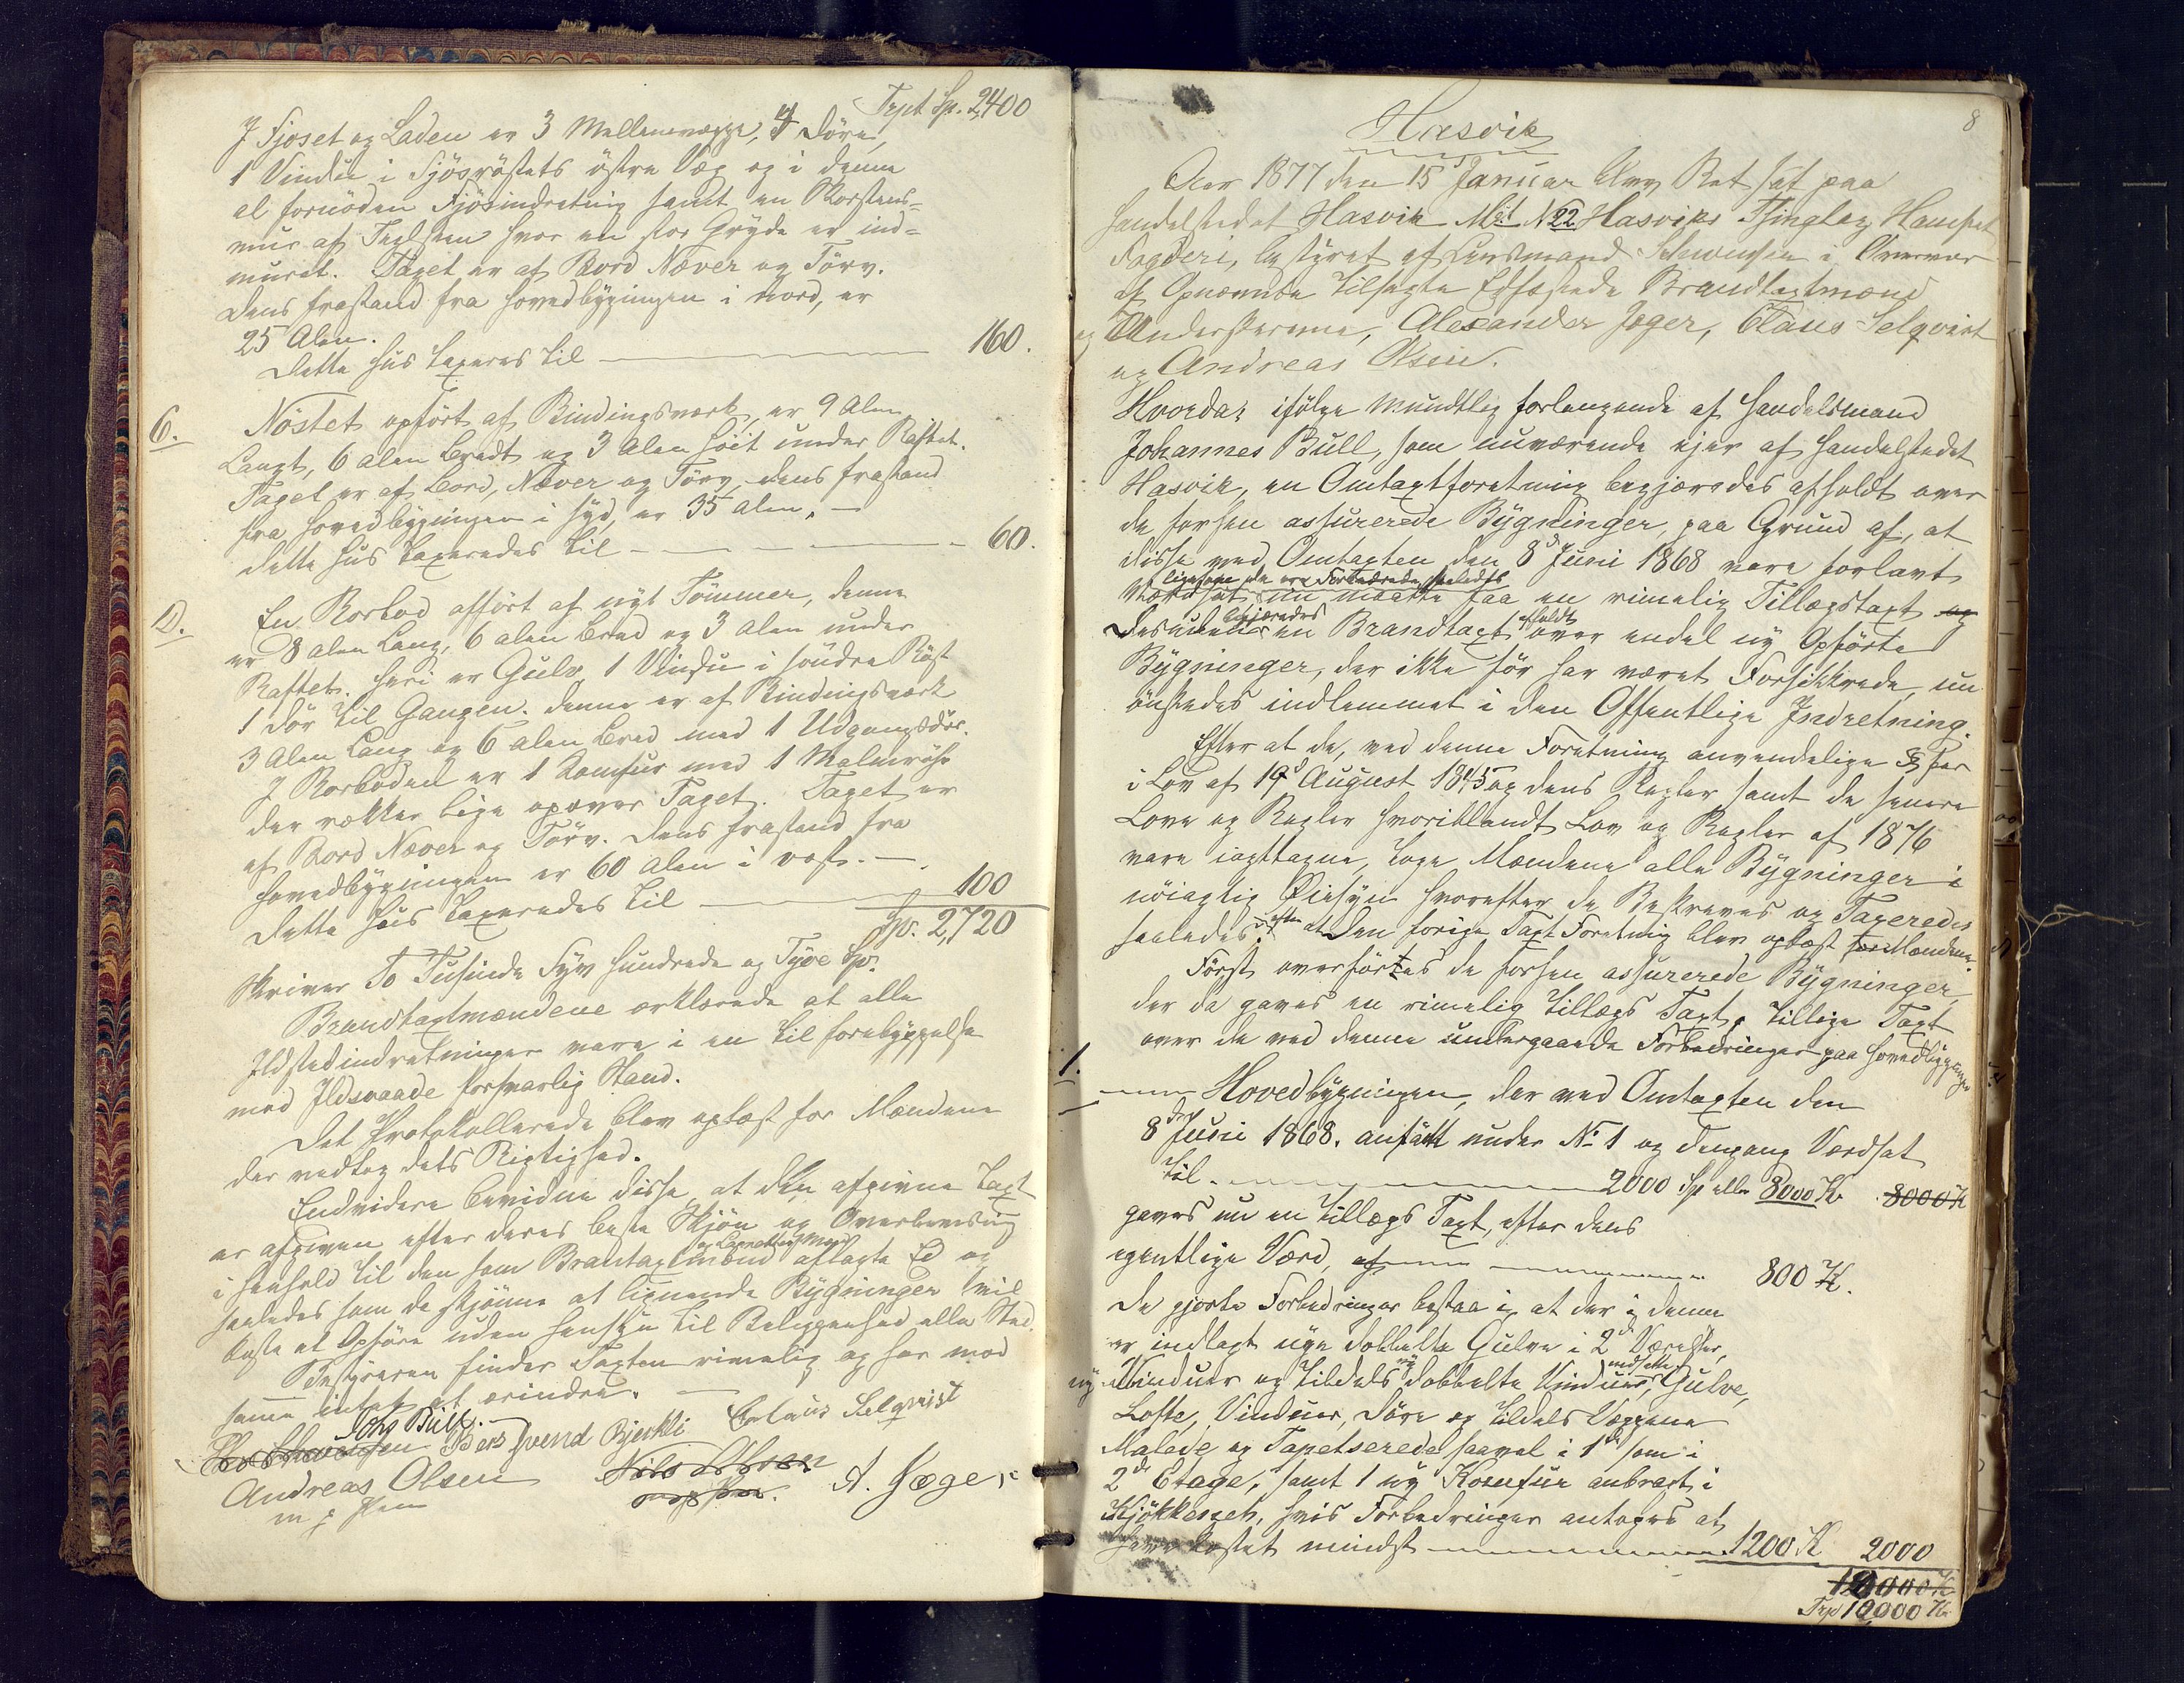 Trpt Sp. 2400
I Fjøset og Laden er 3 Mellemvægge, 4 Døre,
1 Vindu i Fjøsrøstets østre Væg og i denne
al fornöden Fjøsindretning samt en Skorstens-
mur af Teglsten hvor en stor Gryde er ind-
muret. Taget er af Bord Næver og Törv.
Dens frastand fra Hovedbygningen i Nord, er
25 Alen.
Dette Hus taxeres til 160.
6. Nöstet opfört af Bindingsværk, er 9 Alen
Langt, 6 Alen bredt og 3 Alen höit under Raftet.
Taget er af Bord, Næver og Törv, dens frastand
fra Hovedbygningen i Syd, er 35 Alen. —
Dette Hus taxeredes til 60.
D. En Rorbod opfört af nyt Tömmer, denne
er 8 Alen Lang, 6 Alen bred og 3 Alen under
Raftet. Heri er Gulv, 1 Vindu i söndre Röst
1 Dör til Gangen. Denne er af Bindingsværk
3 Alen Lang og 6 Alen bred med 1 Udgangsdör.
I Rorboden er 1 Komfur med 1 Malmrör
der rækker lige op over Taget. Taget er
af Bord Næver og Törv. Dens frastand fra
Hovedbygningen er 60 Alen i vest. —
Dette Hus taxeredes til 100
Sp. 2,720
Skriver To Tusinde Syv Hundrede og Tyve Sp.
Brandtaxtmændene erklærede at alle
Ildstedindretninger vare i en til forebyggelse
mod Ildsvaade forsvarlig Stand.
Det Protokollerede blev oplæst for Mændene
der vedtog dets Rigtighed.
Endvidere bevidne disse, at den afgivne Taxt
er afgiven efter deres beste Skjön og Overbevisning
i henhold til den som Brantaxtmænd og Lagrettesmænd aflagte Ed og
saaledes som de skjönne at lignende Bygninger vil
koste at Opføre uden hensyn til Beliggenhed eller Sted.
Bestyreren finder Taxten rimelig og har mod
samme intet at erindre. —
Johs Bull. Bers Svend Bjerkli Claus Selqvist
Andreas Olsen A. Jæger
m p Pen
8
Hasvik
Aar 1877 den 15d Januar blev Ret sat paa
Handelstedet Hasvik Mat No 22 Hasviks Thinglag, Hammerfest
Fogderi, bestyret af Lensmand Schwensen i Overvær
af Opnævnte tilsagte Edfæstede Brandtaxtmænd
og Underskrevne, Alexander Jæger, Claus Selqvist
og Andreas Olsen.
Hvorda: ifölge mundtlig forlangende af Handelsmand
Johannes Bull, som nuværende ejer af Handelstedet
Hasvik, en Omtaxtforretning begjæredes afholdt over
de forhen assurerede Bygninger, paa Grund af, at
disse ved Omtaxten den 8d Juni 1868 vare forlavt
ligesom de ere Forbedrede saaledes
Værdsat nu maatte faa en rimelig Tillægstaxt og
desuden begjæredes en Brandtaxt afholdt over endel ny Opförte
Bygninger, der ikke för har været Forsikkrede, nu
önskedes indlemmet i den Offentlige Indretning.
Efter at de, ved denne Forretning anvendelige §§ser
i Lov af 19d August 1845 og dens Regler samt de senere
Love og Regler hvoriblandt Lov og Regler af 1876
vare iagttagne, toge Mændene alle Bygninger i
nöiagtig Øiesyn hvorefter de Beskreves og Taxeredes
saaledes: efter at den forige Taxt Forretning blev oplæst for Mændene.
Först overförtes de forhen assurerede Bygninger,
der da gaves en rimelig tillægs Taxt, tillige Taxt
over de ved denne undergaaede Forbedringer paa Hovedbygningen
1. Hovedbygningen, der ved Omtaxten den
8d Juni 1868. anført under No 1 og dengang Værdsat
til 2000 Sp eller 8000 Kr. 8000 Kr
gaves nu en tillægs Taxt, efter dens
egentlige Værd, af 800 Kr.
De gjorte Forbedringer bestaa i, at der i denne
er indlagt nye dobbelte Gulve i 2de Værelser,
ny Vinduer og tildels ny dobbelte Vinduer indsatte, Gulve,
Lofte, Vinduer, Döre og tildels Væggene
Malede og Tapetserede saavel i 1ste som i
2den Etage, samt 1 ny Komfur anbragt i
Kjökkenet, hvis Forbedringer antages at
have kostet mindst 1200 K 2000
10000 Kr
Trp 10000 Kr